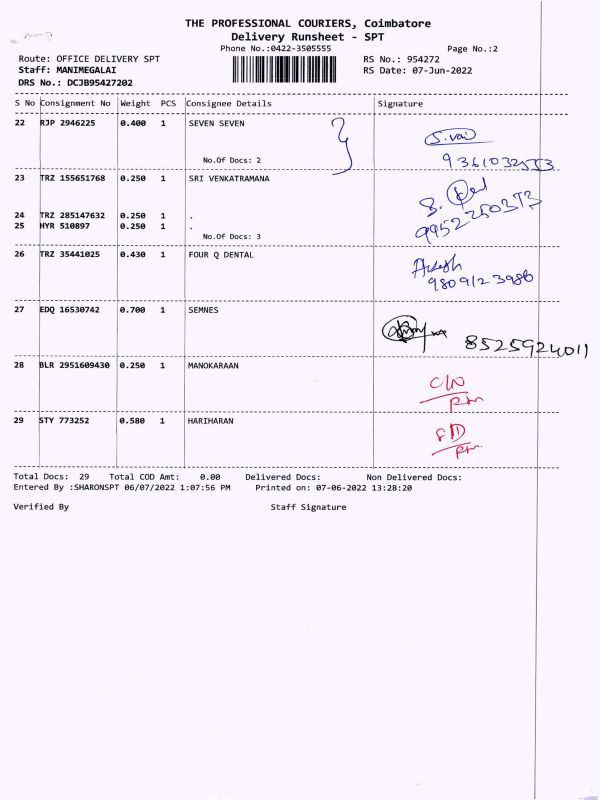 THE PROFESSIONAL COURIERS, Coimbatore
Delivery Runsheet - SPT
Phone No.:0422-3505555 Page No.:2
Route: OFFICE DELIVERY SPT RS No.: 954272
Staff: MANIMEGALAI RS Date: 07-Jun-2022
DRS No.: DCJB95427202
S No Consignment No Weight PCS Consignee Details Signature
22 RJP 2946225 0.400 1 SEVEN SEVEN
No.Of Docs: 2
23 TRZ 155651768 0.250 1 SRI VENKATRAMANA
24 TRZ 285147632 0.250 1 .
25 HYR 510897 0.250 1 .
No.Of Docs: 3
9952250373
26 TRZ 35441025 0.430 1 FOUR Q DENTAL
9809123986
27 EDQ 16530742 0.700 1 SEMNES
8525924011
28 BLR 2951609430 0.250 1 MANOKARAAN
29 STY 773252 0.580 1 HARIHARAN
Total Docs: 29 Total COD Amt: 0.00 Delivered Docs: Non Delivered Docs:
Entered By :SHARONSPT 06/07/2022 1:07:56 PM Printed on: 07-06-2022 13:28:20
Verified By Staff Signature